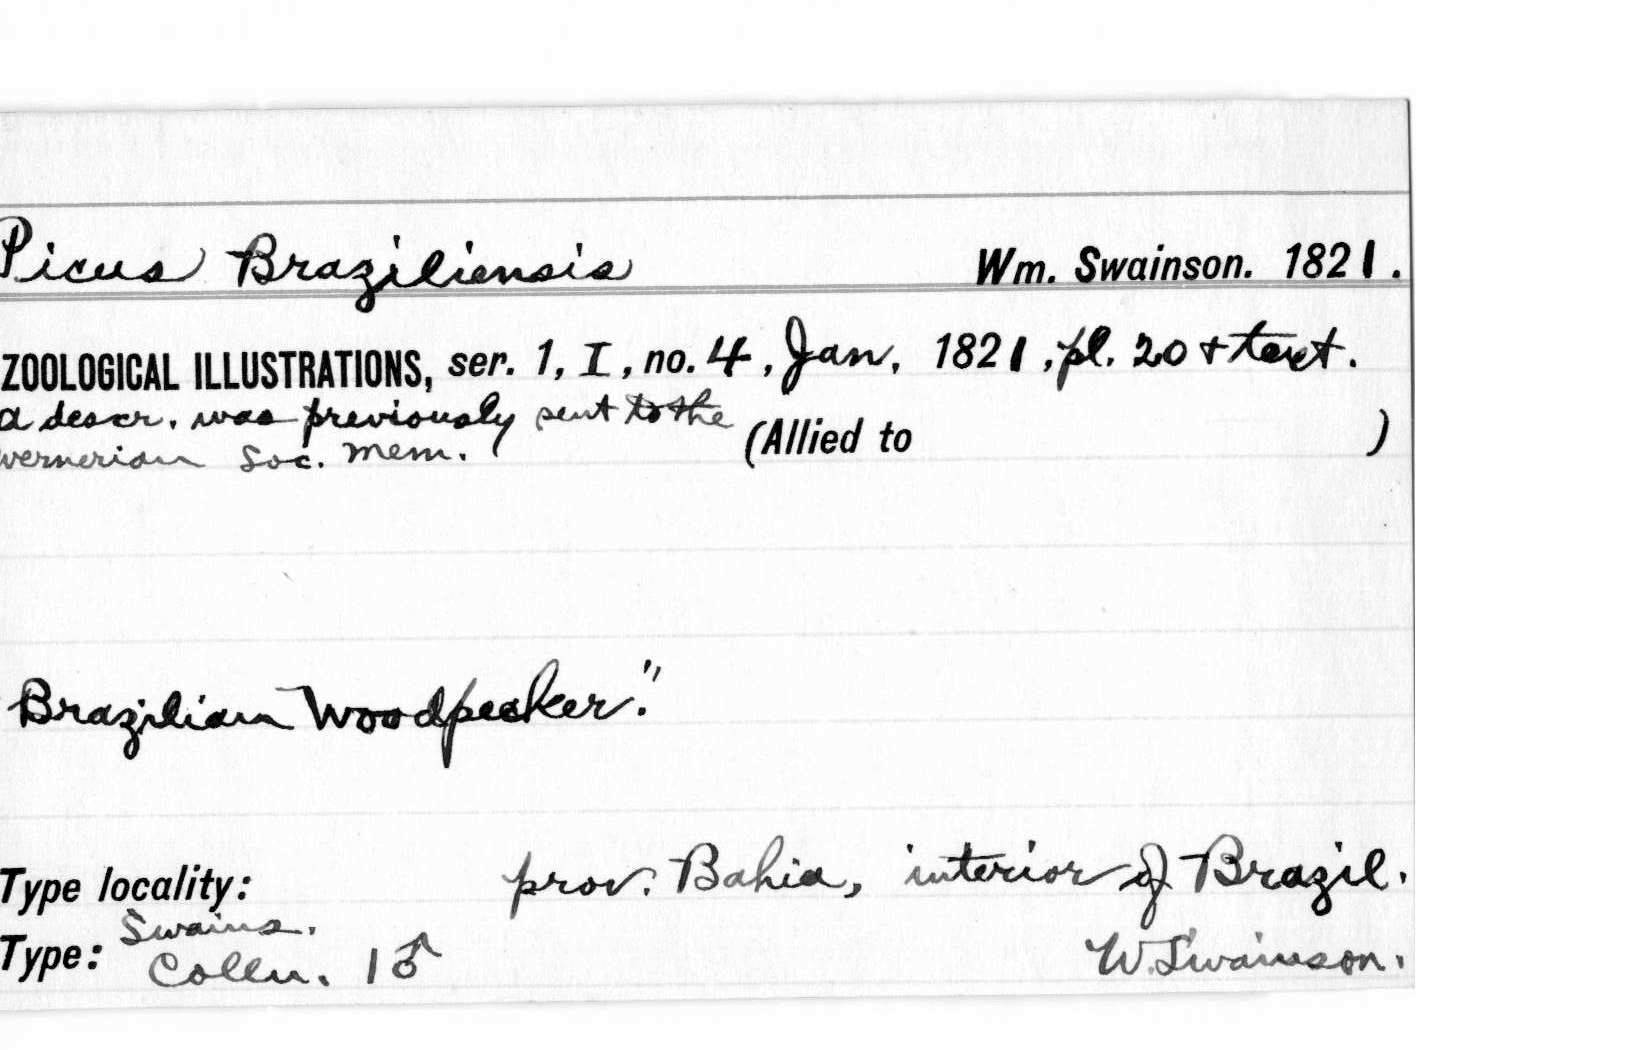 Picus Braziliensis Wm. Swainson. 1821.
ZOOLOGICAL ILLUSTRATIONS, ser. 1, I, no. 4, Jan, 1821, pl. 20 + text.
a descr. was previously sent to the
(Allied to )
wernerian Soc. mem.
Brazilian Woodpecker."
Type locality: prov. Bahia, interior of Brazil.
Swains.
Type: Colln. 1 ♂ W. Swainson.